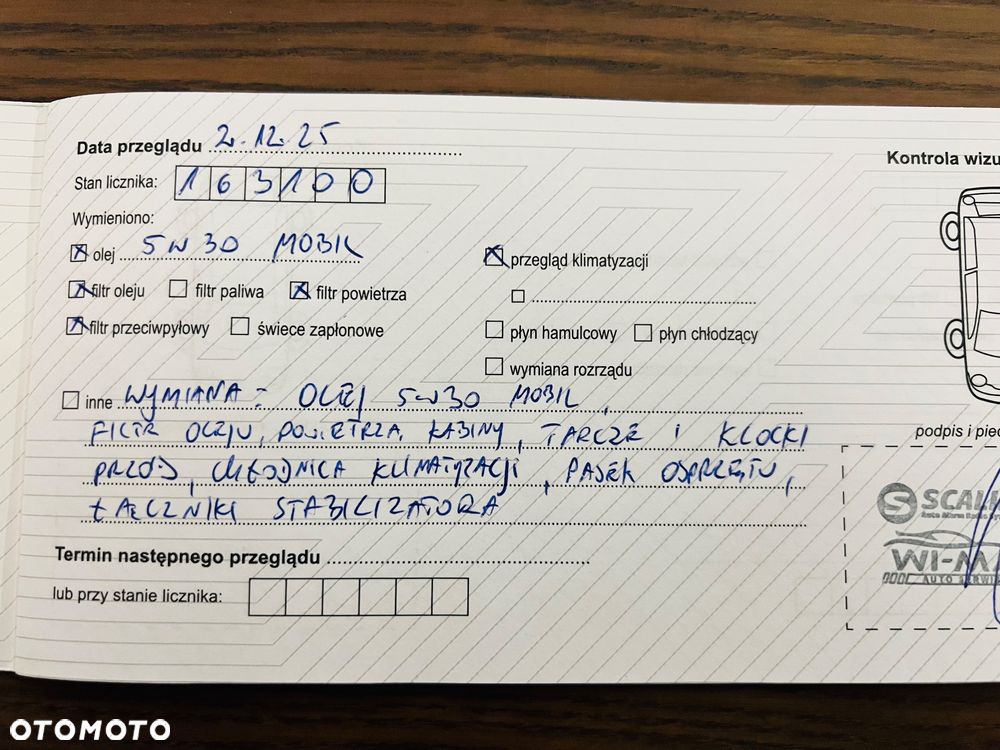 Data przeglądu 2.12.25
Kontrola wizu
Stan licznika: 163100
Wymieniono:
olej 5W30 MOBIL
przegląd klimatyzacji
filtr oleju filtr paliwa filtr powietrza
filtr przeciwpyłowy świece zapłonowe
płyn hamulcowy płyn chłodzący
wymiana rozrządu
inne WYMIANA: OLEJ 5W30 MOBIL,
FILTR OLEJU, POWIETRZA, KABINY, TARCZE I KLOCKI
PRZÓD, CHŁODNICA KLIMATYZACJI, PASEK OSPRZĘTU,
ŁĄCZNIKI STABILIZATORA
podpis i piec
S SCALI
WI-MA
AUTO SERWI
Termin następnego przeglądu
lub przy stanie licznika:
OTOMOTO